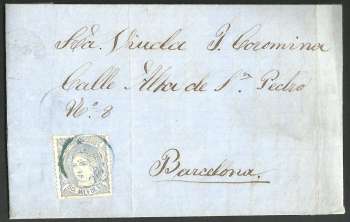 Sra. Viuda J. Coromina
Calle Alta de Sn. Pedro
No. 8
Barcelona.